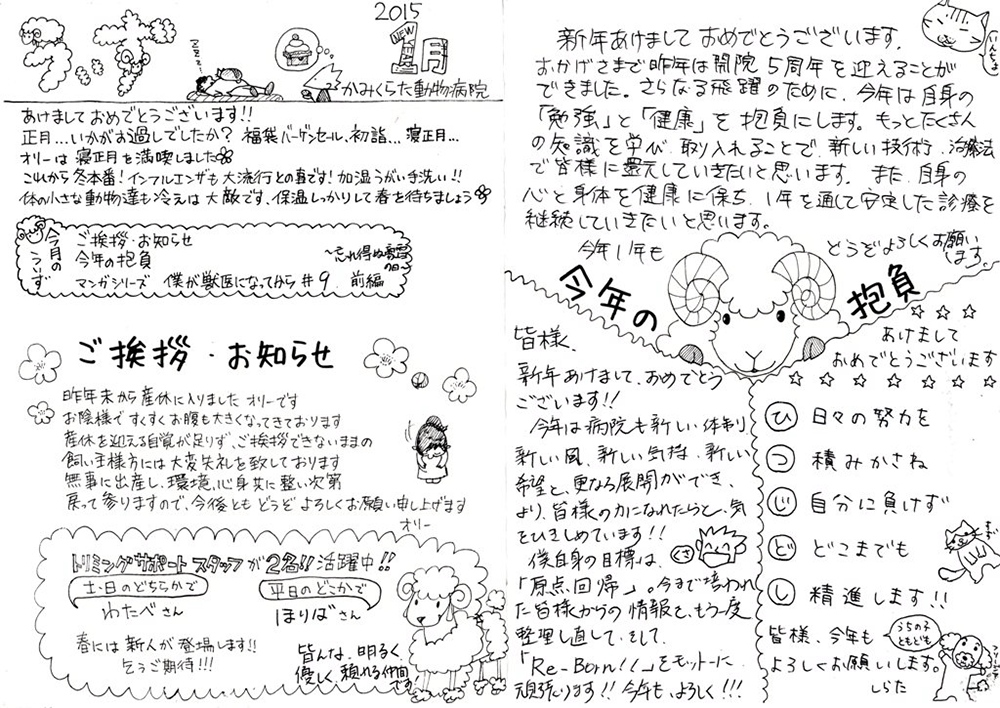 2015
NEW
1月
zzzz
かみくらた動物病院
あけましておめでとうございます!!
正月…いかがお過しでしたか? 福袋バーゲンセール、初詣…寝正月…
オリーは寝正月を満喫しました
これから冬本番!インフルエンザも大流行との事です!加湿うがい手洗い!!
体の小さな動物達も冷えは大敵です、保温しっかりして春を待ちましょう
今月のうぃず
ご挨拶・お知らせ
今年の抱負
マンガシリーズ 僕が獣医になってから #9 前編
ご挨拶・お知らせ
昨年末から産休に入りました オリーです
お陰様ですくすくお腹も大きくなってきております
産休を迎える自覚が足りず、ご挨拶できないままの
飼い主様方には大変失礼を致しております
無事に出産し、環境、心身共に整い次第
戻って参りますので、今後とも どうぞ よろしくお願い申し上げます
オリー
トリミングサポート スタッフが2名!! 活躍中!!
土・日のどちらかで
わたべさん
平日のどこかで
ほりばさん
春には新人が登場します!!
乞うご期待!!!
皆んな、明るく
優しく、頼れる仲間
です
新年あけまして おめでとうございます.
おかげさまで昨年は開院5周年を迎えることが
できました。さらなる飛躍のために、今年は自身の
「勉強」と「健康」を抱負にします。もっとたくさん
の知識を学び、取り入れることで、新しい技術、治療法
で皆様に還元していきたいと思います。また、自身の
心と身体を健康に保ち、1年を通して安定した診療を
継続していきたいと思います。
今年1年も
どうぞよろしくお願い
します。
今年の 抱負
皆様、
新年あけまして、おめでとう
ございます!!
今年は病院も新しい体制
新しい風、新しい気持、新しい
希望と、更なる展開ができ、
より、皆様の力になれたらと、気
をひきしめています!!
僕自身の目標は、
「原点回帰」。今まで培われ
た皆様からの情報を、もう一度
整理し直して、そして、
「Re-Born!!」をモットーに
頑張ります!! 今年も、よろしく!!!
あけまして
おめでとうございます
ひ 日々の努力を
つ 積みかさね
じ 自分に負けず
ど どこまでも
し 精進します!!
皆様、今年も
よろしくお願いします。
しらた
うちの子
ともども